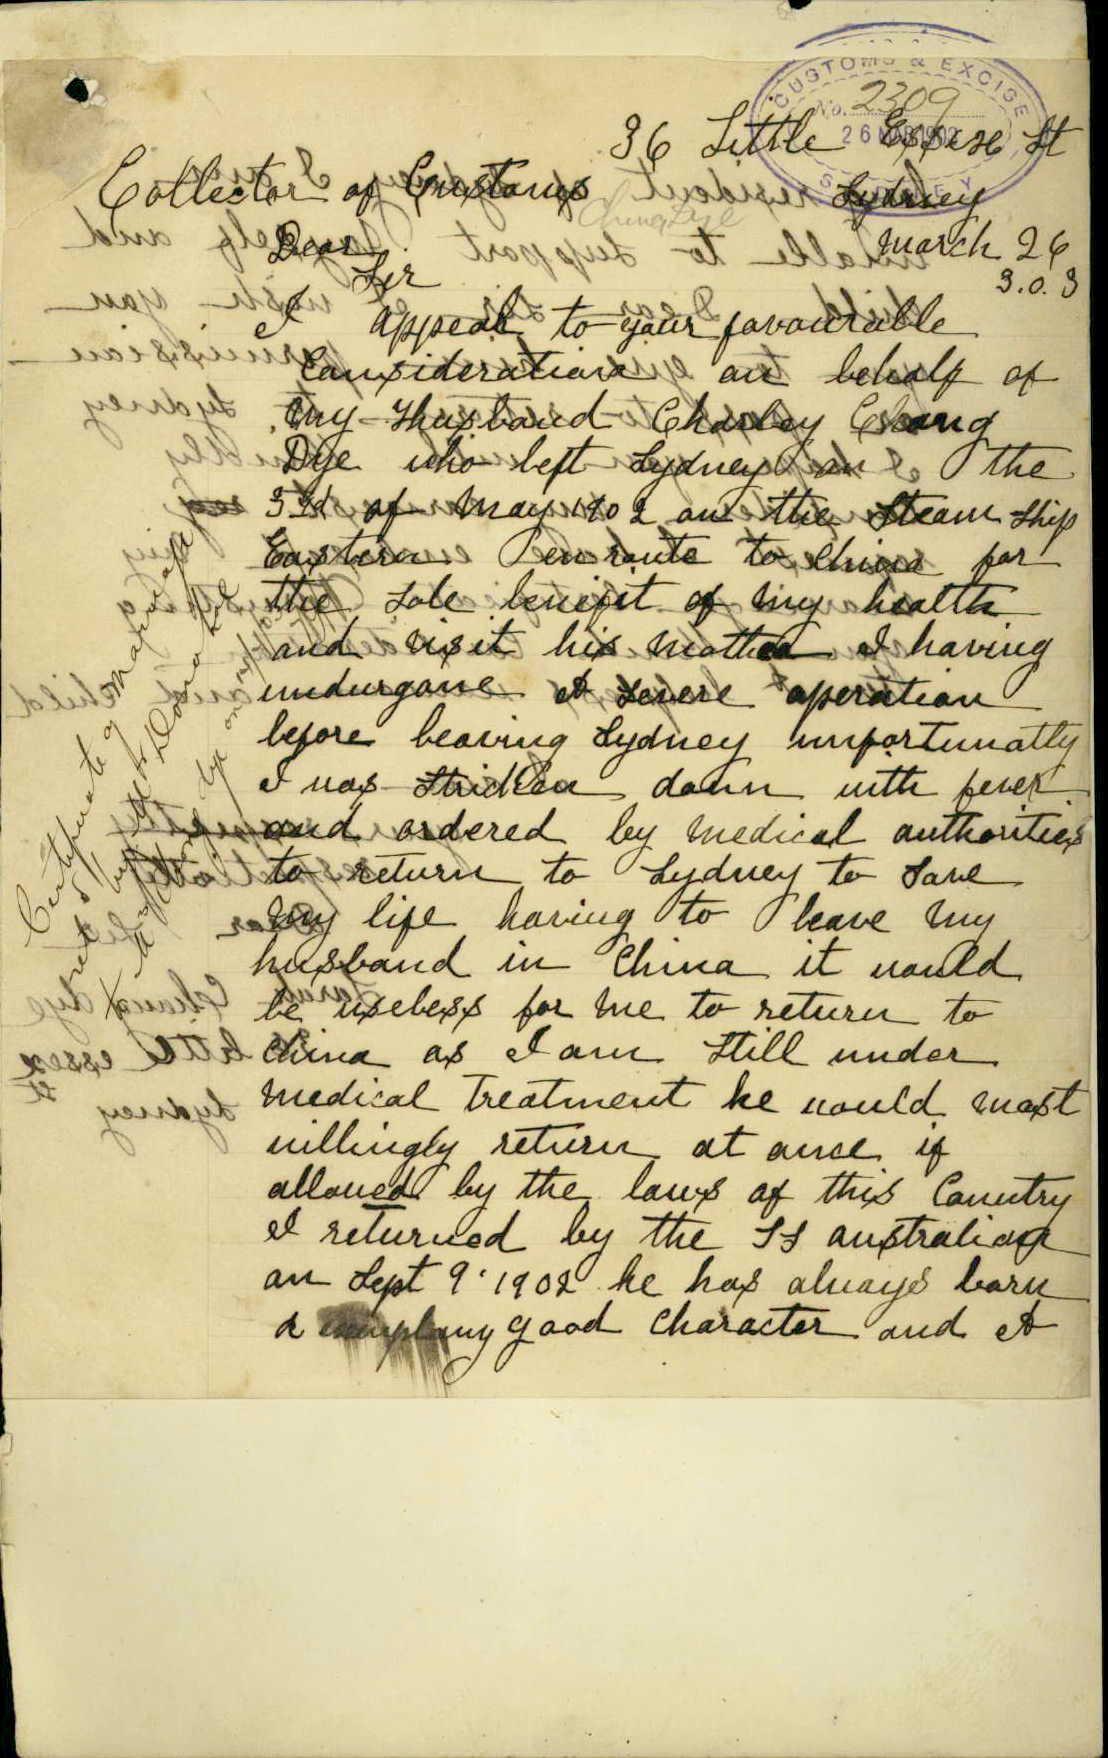 CUSTOMS & EXCISE
No. 2309
26 MAR 1903
SYDNEY
36 Little Essex St
Collector of Coustoms Sydney
Chang Dye
Dear March 26
Sir 3.0.3
I appeal to your favourable
Consideration on behalf of
my Husband Charley Chang
Dye who left Sydney on the
3rd of May 1902 on the Steam Ship
Eastern en route to China for
the sole benifit of my health
and visit his mother I having
undurgone A severe operation
before leaving Sydney unfortunatly
I was Stricken down with fever
and ordered by medical authorities
to return to Sydney to save
my life having to leave my
husband in China it would
be useless for me to return to
China as I am still under
medical treatment he would most
willingly return at once if
allowed by the laws of this Country
I returned by the SS australian
on Sept 9. 1902 he has always born
a good character and A
Certificate of Marriage